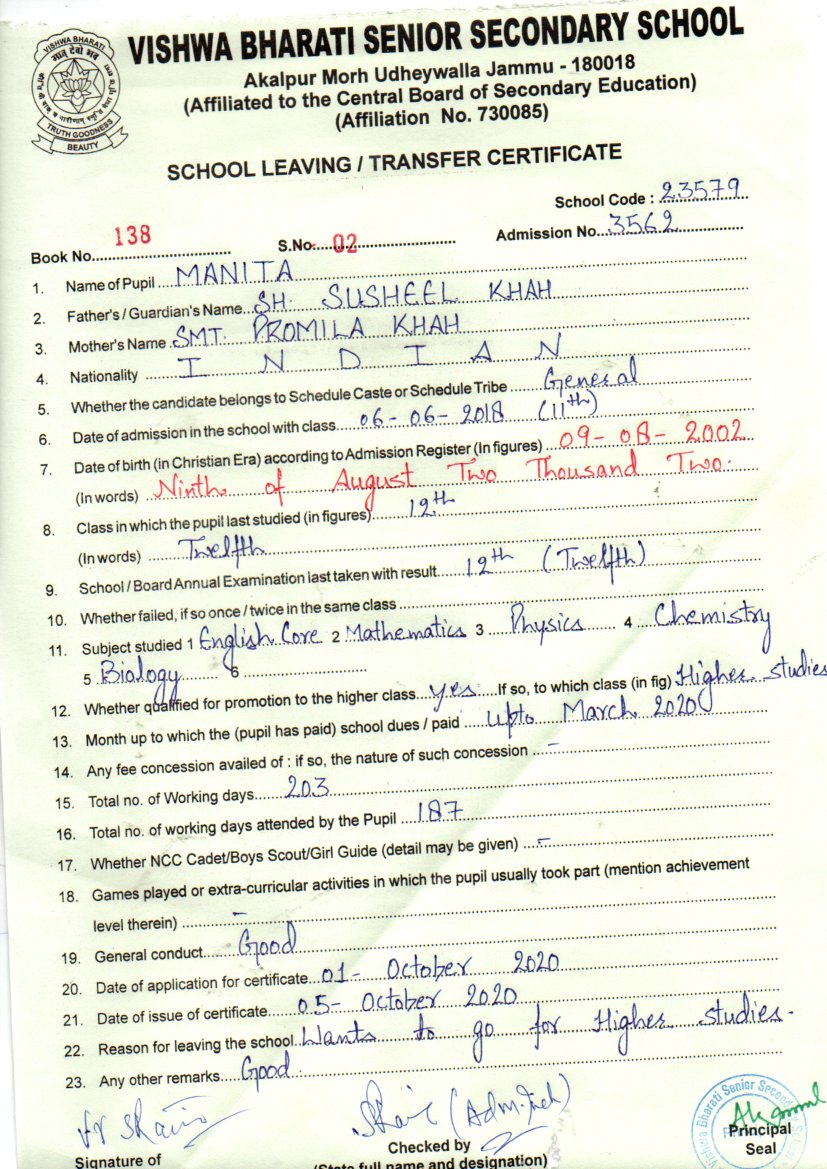 VISHWA BHARATI
TRUTH GOODNESS
BEAUTY
VISHWA BHARATI SENIOR SECONDARY SCHOOL
Akalpur Morh Udheywalla Jammu - 180018
(Affiliated to the Central Board of Secondary Education)
(Affiliation No. 730085)
SCHOOL LEAVING / TRANSFER CERTIFICATE
School Code : 23579
Book No. 138 S.No. 02 Admission No. 3562
1. Name of Pupil MANITA
2. Father's / Guardian's Name SH. SUSHEEL KHAH
3. Mother's Name SMT. PROMILA KHAH
4. Nationality INDIAN
5. Whether the candidate belongs to Schedule Caste or Schedule Tribe General
6. Date of admission in the school with class 06-06-2018 (11th)
7. Date of birth (in Christian Era) according to Admission Register (In figures) 09-08-2002
(In words) Ninth of August Two Thousand Two.
8. Class in which the pupil last studied (in figures) 12th
(In words) Twelfth
9. School / Board Annual Examination last taken with result 12th (Twelfth)
10. Whether failed, if so once / twice in the same class
11. Subject studied 1 English Core 2 Mathematics 3 Physics 4 Chemistry
5 Biology 6
12. Whether qualified for promotion to the higher class yes If so, to which class (in fig) Higher studies
13. Month up to which the (pupil has paid) school dues / paid upto March 2020
14. Any fee concession availed of : if so, the nature of such concession -
15. Total no. of Working days 203
16. Total no. of working days attended by the Pupil 187
17. Whether NCC Cadet/Boys Scout/Girl Guide (detail may be given) -
18. Games played or extra-curricular activities in which the pupil usually took part (mention achievement
level therein) -
19. General conduct Good
20. Date of application for certificate 01- October 2020
21. Date of issue of certificate 05- October 2020
22. Reason for leaving the school Wants to go for Higher studies.
23. Any other remarks Good
(Adm. Inch)
Vishwa Bharati Senior
Signature of Checked by Principal
(State full name and designation) Seal